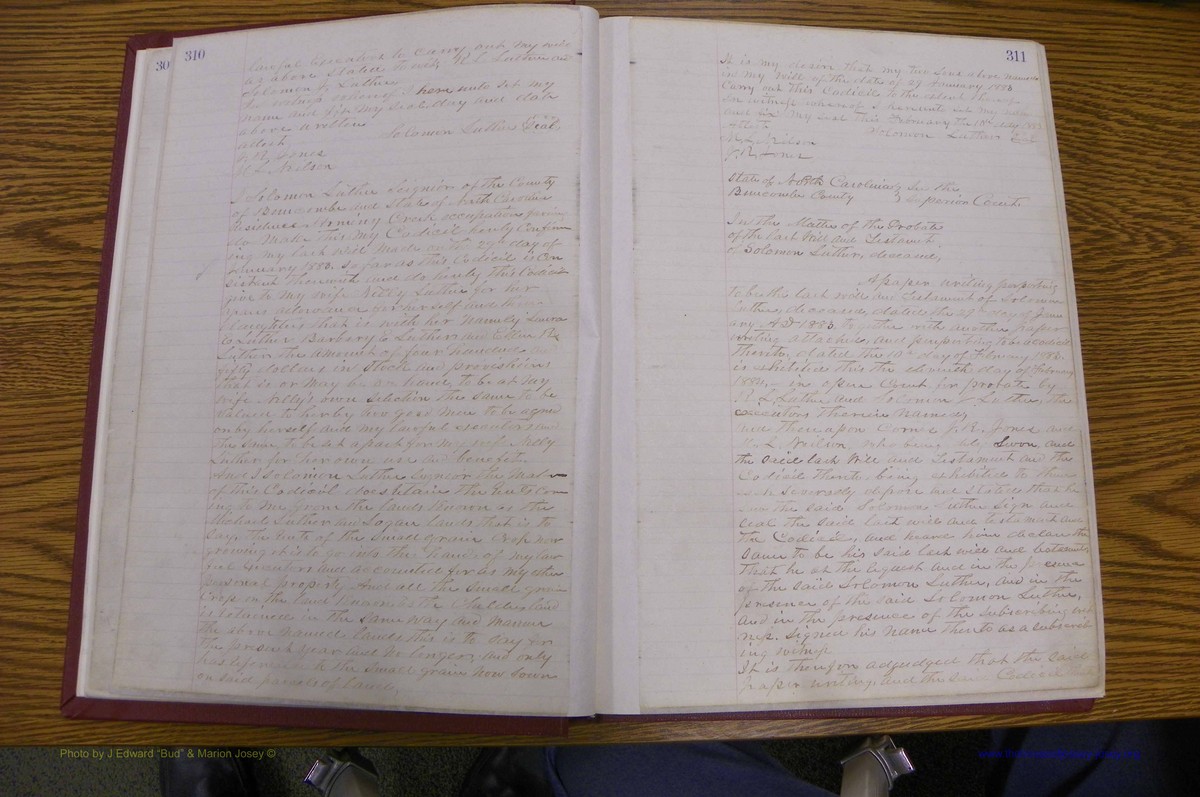 310
30
lawful Executors to carry out my will
as above stated to wit, R L Luther and
Solomon L Luther
In witness whereof I have unto set my
name and fix my seal day and date
above written
Solomon Luther Seal,
attest
J. R. Jones
W. L. Neilson
I Solomon Luther Seignior of the County
of Buncombe and State of North Carolina
Residence Hominy Creek occupation farming
do Make this My Codicil hereby Confirm
ing my last will made on the 29th day of
January 1883. So far as this Codicil is con
sistent therewith and do hereby this Codicil
give to my wife Nelly Luther for her
years allowance for herself and three
daughters that is with her namely Laura
C Luther, Barbery C Luther and Ellen R
Luther the amount of four hundred and
fifty dollars in stock and provisions
that is or may be on hand, to be at my
wife Nelly's own selection the same to be
valued to her by two good men to be agreed
on by herself and my lawful executors and
the same to be set apart for my wife Nelly
Luther for her own use and benefit,
And I Solomon Luther Signor the maker
of this Codicil does plain the rents com
ing to me from the lands known as the
Michael Luther and Logan lands that is to
say, the rents of the small grain crop now
growing it is to go into the hands of my law
ful executors and accounted for as my other
personal property. And all the small grain
Crop on the land known as the land
is retained in the same way and manner
the above named lands this is to day for
the present year and no longer, and only
has reference to the small grain now sown
on said parcels of land,
311
It is my desire that my two sons above named
in my will of the date of 29 January 1883
Carry out this Codicil to the extent thereof
In witness whereof I hereunto set my name
and fix my seal this February the 10th day 1883
Attest Solomon Luther Seal
W. L. Neilson
J. R. Jones
State of North Carolina } In the
Buncombe County } Superior Court
In the Matter of the Probate
of the last Will and Testament,
of Solomon Luther, deceased,
A paper writing purporting
to be the last will and testament of Solomon
Luther, deceased, dated the 29th day of Janu
ary A.D 1883. together with another paper
writing attached and purporting to be a codicil
thereto, dated the 10th day of February 1883.
is exhibited this the eleventh day of February
1884, in open Court for probate by
R. L. Luther and Solomon L Luther, the
executors therein named,
and thereupon comes J. R. Jones and
W. L. Neilson, who being duly Sworn and
the said last Will and Testament and the
Codicil thereto being exhibited to them
each severally depose and states that he
saw the said Solomon Luther sign and
seal the said last will and testament and
the Codicil, and heard him declare the
same to be his said last will and testament
that he at the request and in the presence
of the said Solomon Luther, and in the
presence of the said Solomon Luther,
and in the presence of the subscribing wit
ness. signed his name thereto as a subscrib
ing witness
It is therefore adjudged that the said
paper writing, and the said Codicil
Photo by J Edward "Bud" & Marion Josey ©